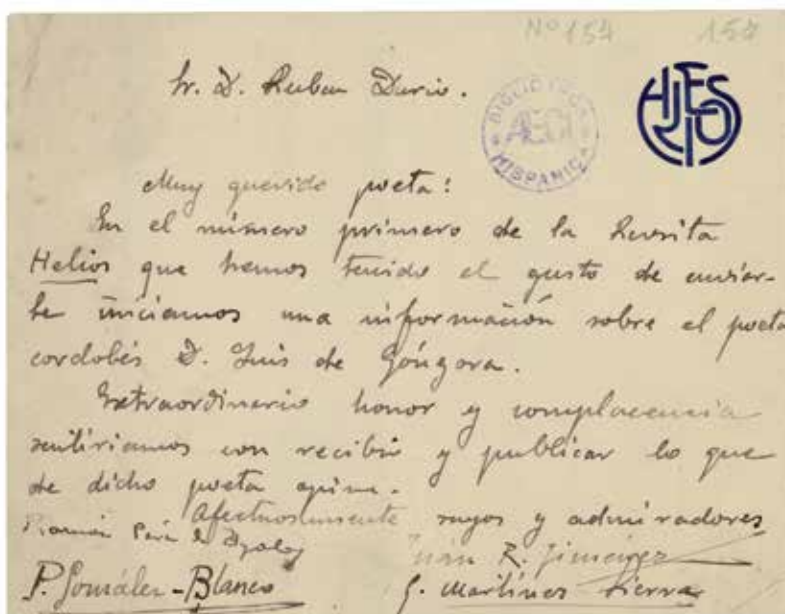 Nº 154 154
Sr. D. Ruben Dario.
BIBLIOTECA
AECI
HISPANICA
HELIOS
Muy querido poeta:
En el número primero de la Revista
Helios que hemos tenido el gusto de enviar-
le iniciamos una información sobre el poeta
cordobés D. Luis de Góngora.
Extraordinario honor y complacencia
sentiriamos con recibir y publicar lo que
de dicho poeta opina.
Afectuosamente suyos y admiradores
Ramón Pérez de Ayala
Juán R. Jiménez
P. González-Blanco
G. Martínez Sierra